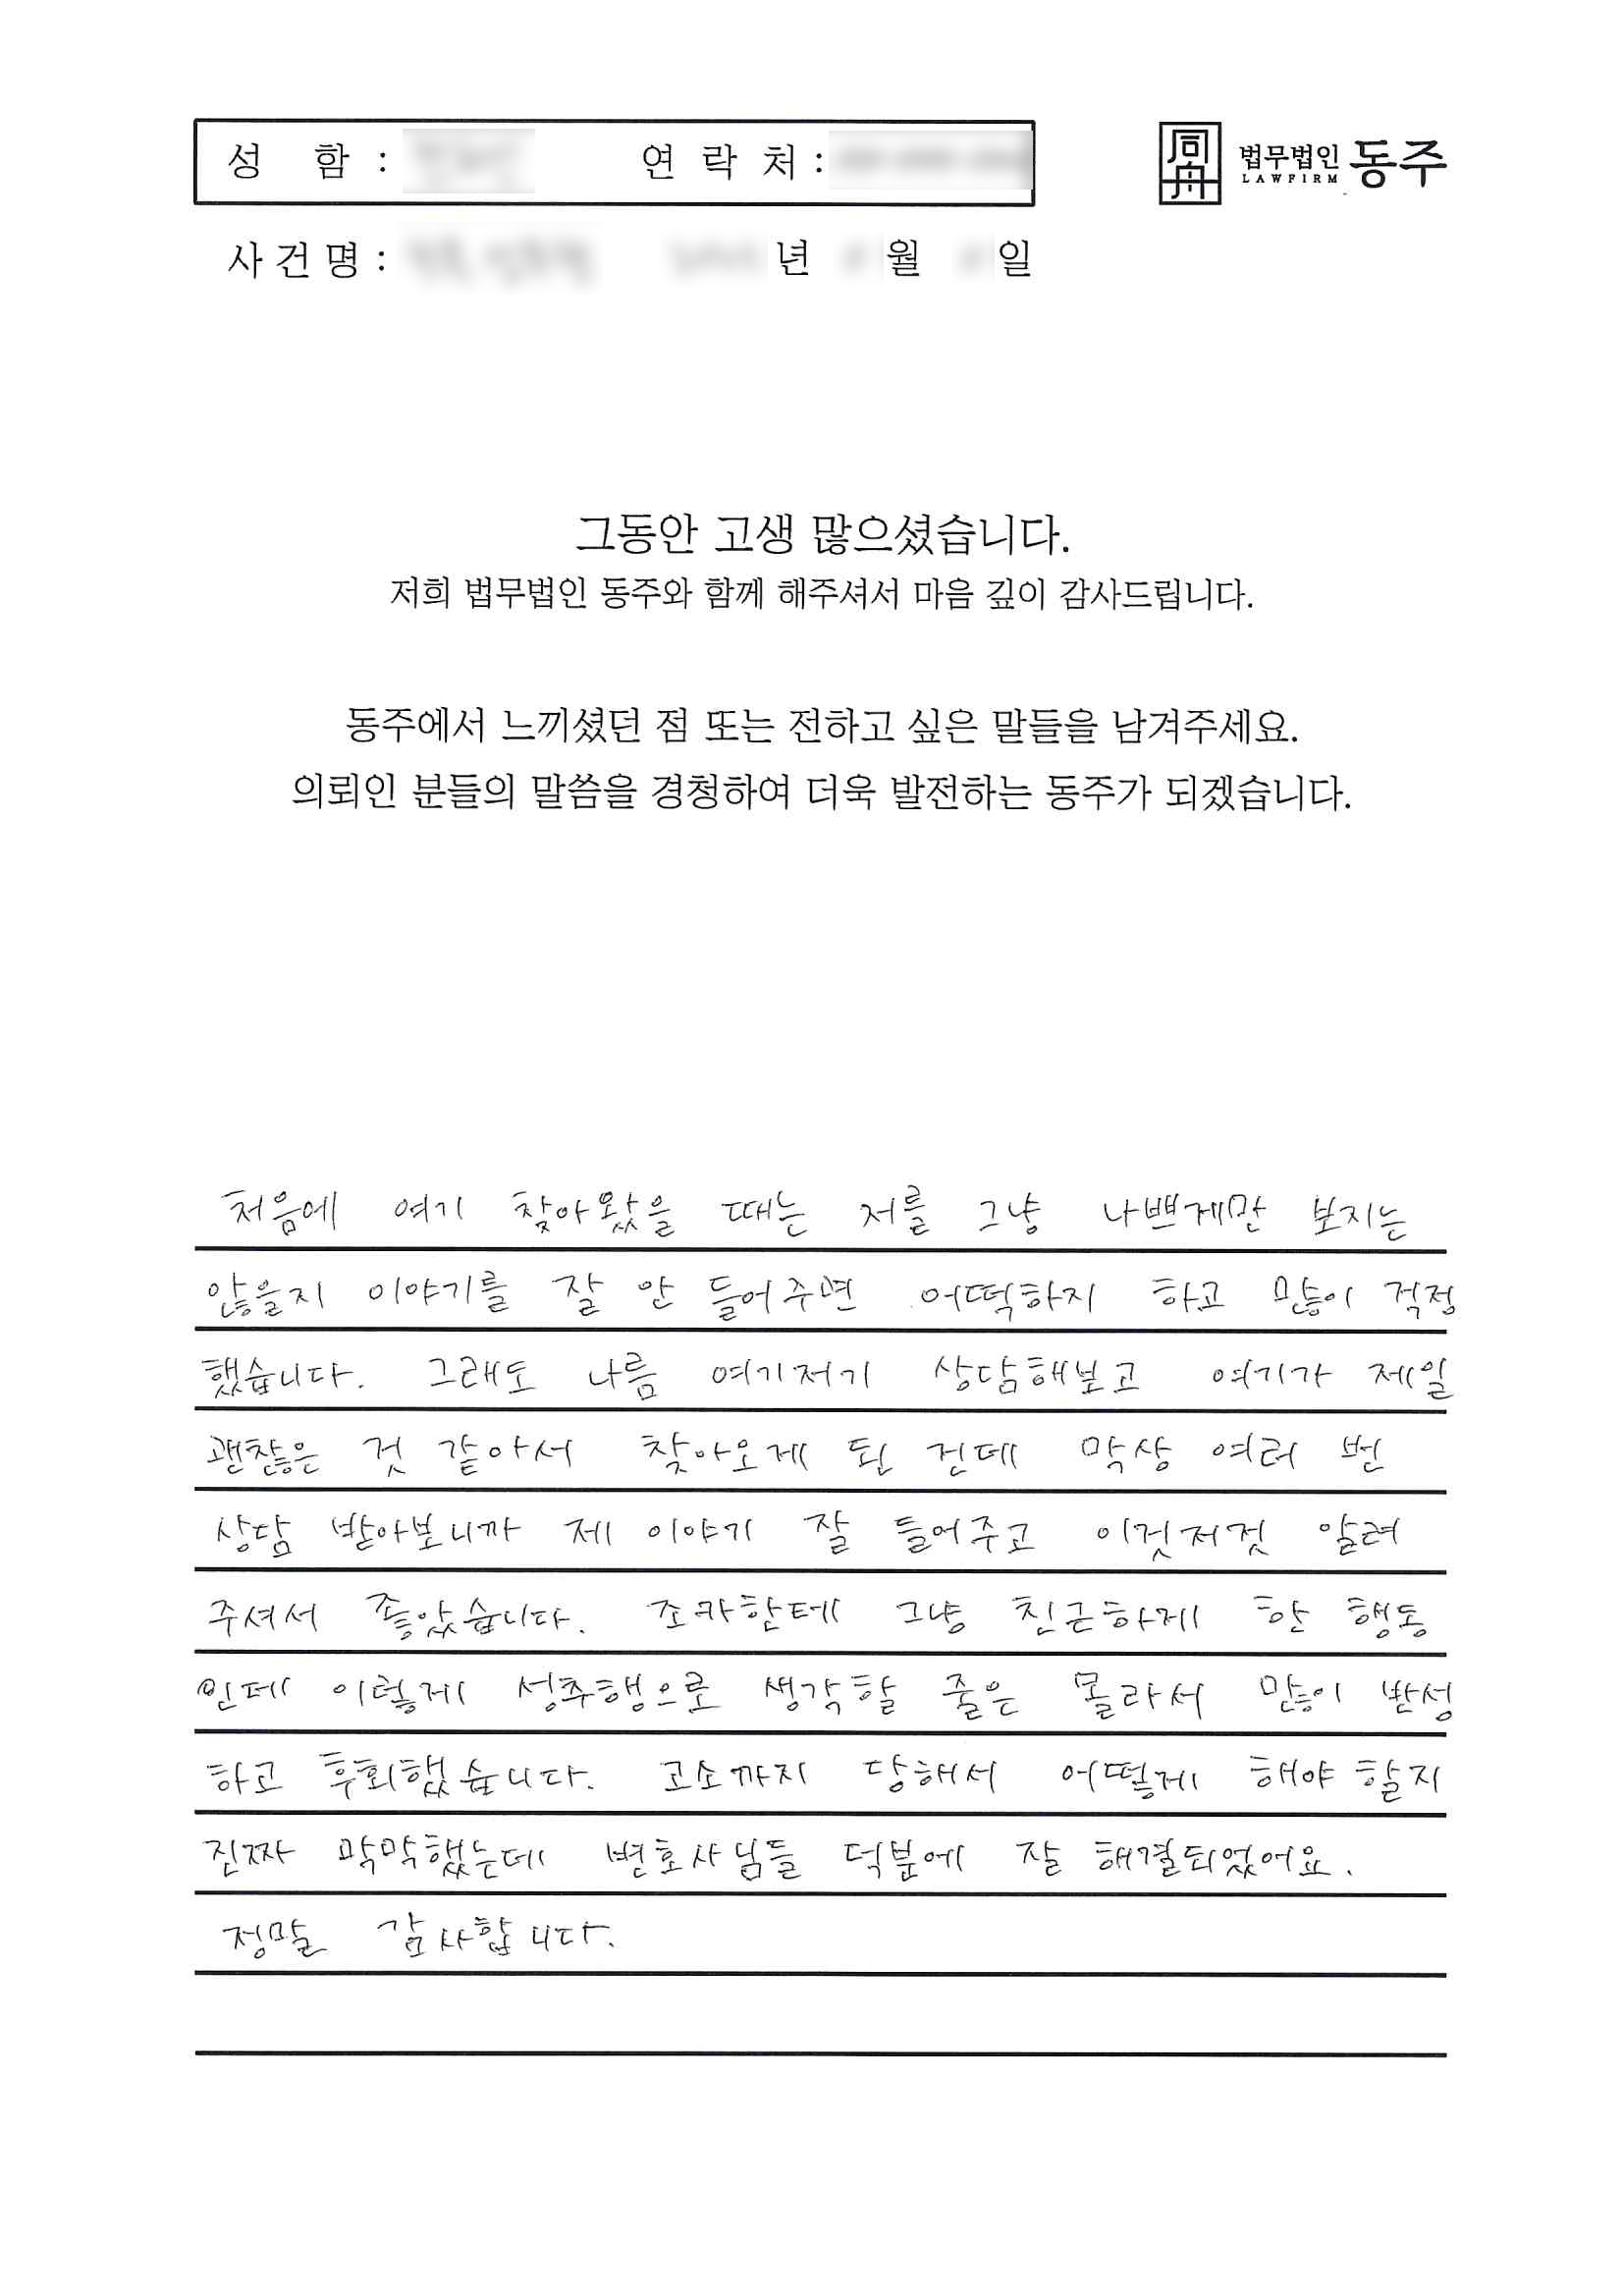 성 함 : 연 락 처 :
同舟 법무법인 동주
LAWFIRM
사 건 명 : 년 월 일
그동안 고생 많으셨습니다.
저희 법무법인 동주와 함께 해주셔서 마음 깊이 감사드립니다.
동주에서 느끼셨던 점 또는 전하고 싶은 말들을 남겨주세요.
의뢰인 분들의 말씀을 경청하여 더욱 발전하는 동주가 되겠습니다.
처음에 여기 찾아왔을 때는 저를 그냥 나쁘게만 보지는
않을지 이야기를 잘 안 들어주면 어떡하지 하고 많이 걱정
했습니다. 그래도 나름 여기저기 상담해보고 여기가 제일
괜찮은 것 같아서 찾아오게 된 건데 막상 여러 번
상담 받아보니까 제 이야기 잘 들어주고 이것저것 알려
주셔서 좋았습니다. 조카한테 그냥 친근하게 한 행동
인데 이렇게 성추행으로 생각할 줄은 몰라서 많이 반성
하고 후회했습니다. 고소까지 당해서 어떻게 해야 할지
진짜 막막했는데 변호사님들 덕분에 잘 해결되었어요.
정말 감사합니다.